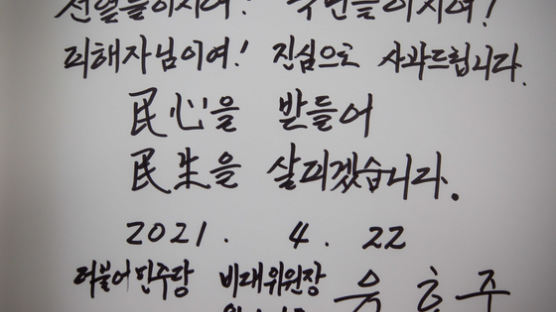 선열들이시여! 국민들이시여!
피해자님이여! 진심으로 사과드립니다.
民心을 받들어
民生을 살피겠습니다.
2021. 4. 22
더불어민주당 비대위원장 윤호중